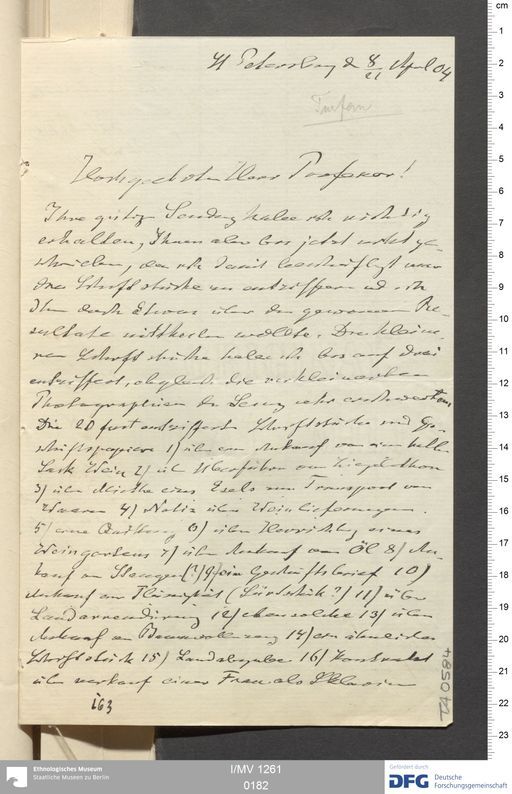 St Petersburg d 8/21 April 04
Turfan
Hochgeehrter Herr Professor!
Ihre gütige Sendung habe ich richtig
erhalten, Ihnen aber bis jetzt nicht ge-
schrieben, da ich damit beschäftigt war
die Schriftstücke zu entziffern und ich
Ihnen doch Etwas über die gewonnenen Re-
sultate mittheilen wollte. Die kleine-
ren Schriftstücke habe ich bis auf drei
entziffert, obgleich die verkleinerten
Photographien die Lesung sehr erschwerten
Die 20 fast entzifferten Schriftstücke sind Ge-
schäftspapiere 1) über den Ankauf von einem halben
Sack Wein 2) über
3) über Miethe eines Esels zum Transport von
Waaren 4) Notiz über Weinlieferungen
5) eine Quittung 6) über Herrichtung eines
Weingartens 7) über Ankauf von Öl 8) An-
kauf von Stangen (?) 9) ein Geschäftsbrief 10)
Ankauf von (?) 11) über
Landarrendirung 12) eben solche 13) über
Ankauf von Baumwollenzeug 14) ein ähnliches
Schriftstück 15) Landabgabe 16) Kontrakt
über Verkauf einer Frau als Sklavin
163
TA 0584
cm
1
2
3
4
5
6
7
8
9
10
11
12
13
14
15
16
17
18
19
20
21
22
23
Ethnologisches Museum
Staatliche Museen zu Berlin
I/MV 1261
0182
Gefördert durch
DFG Deutsche
Forschungsgemeinschaft